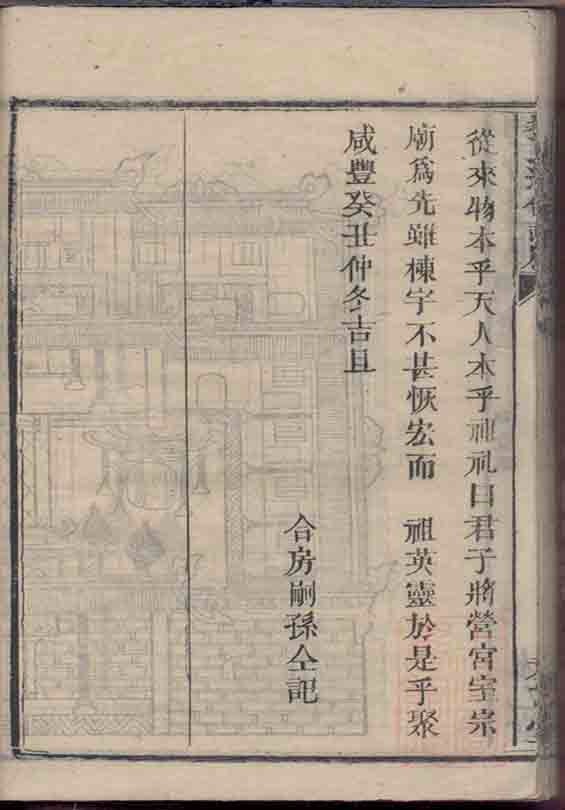 從來物本乎天人本乎祖礼曰君子將營宮室宗
廟爲先雖棟宇不甚恢宏而　祖英靈於是乎聚
咸豐癸丑仲冬吉旦
合房嗣孫仝記